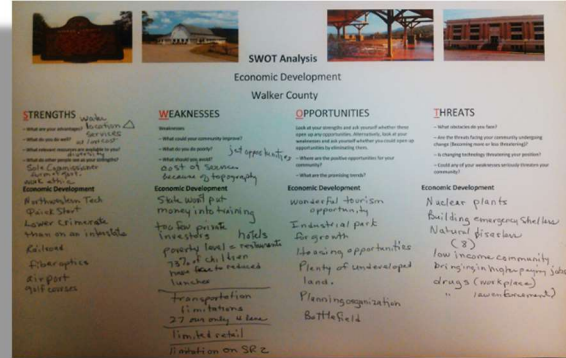 SWOT Analysis
Economic Development
Walker County
STRENGTHS
Water
location
services
at low cost
~ What are your advantages?
~ What do you do well?
~ What relevant resources are available to you?
diversity
~ What do other people see as your strengths?
Sole Commissioner
form of govt.
work ethic
Economic Development
Northwestern Tech
Quick Start
Lower crime rate
than on an interstate
Railroad
fiber optics
airport
golf courses
WEAKNESSES
Weaknesses
~ What could your community improve?
~ What do you do poorly?
job opportunities
~ What should you avoid?
cost of services
because of topography
Economic Development
State won't put
money into training
too few private
investors hotels
poverty level = restaurants
75% of children
have free to reduced
lunches
transportation
limitations
27 our only 4 lane
limited retail
limitation on SR 2
OPPORTUNITIES
Look at your strengths and ask yourself whether these
open up any opportunities. Alternatively, look at your
weaknesses and ask yourself whether you could open up
opportunities by eliminating them.
~ Where are the positive opportunities for your
community?
~ What are the promising trends?
Economic Development
wonderful tourism
opportunity
Industrial park
for growth
Housing opportunities
Plenty of undeveloped
land.
Planning organization
Battlefield
THREATS
~ What obstacles do you face?
~ Are the threats facing your community undergoing
change (Becoming more or less threatening)?
~ Is changing technology threatening your position?
~ Could any of your weaknesses seriously threaten your
community?
Economic Development
Nuclear plants
Building emergency shelters
Natural disasters
(8)
low income community
bringing in higher paying jobs
drugs (workplace)
" law enforcement)